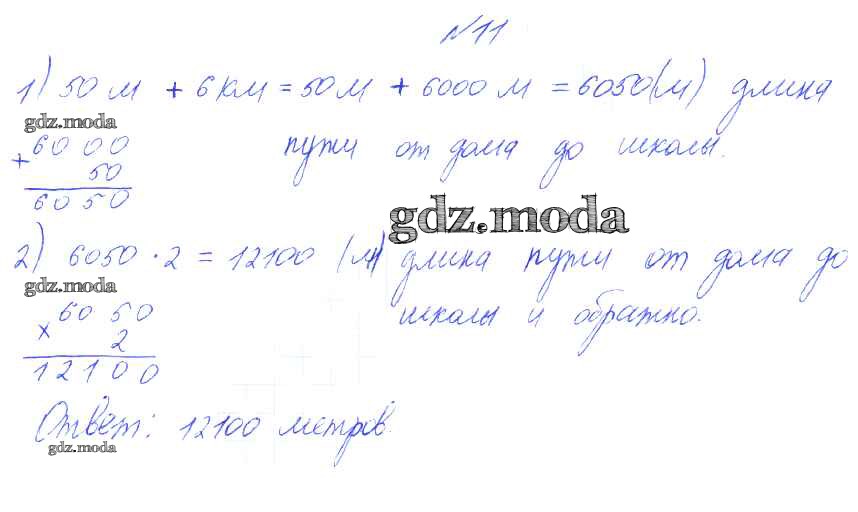 №11
1) 50 м + 6 км = 50 м + 6000 м = 6050 (м) длина
gdz.moda
пути от дома до школы.
+ 6000
50
6050
gdz.moda
2) 6050 · 2 = 12100 (м) длина пути от дома до
gdz.moda
школы и обратно.
× 6050
2
12100
Ответ: 12100 метров.
gdz.moda